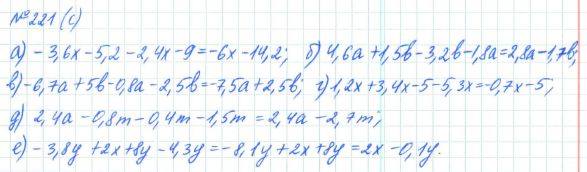 №221 (с)
а) -3,6x-5,2-2,4x-9=-6x-14,2; б) 4,6a+1,5b-3,2b-1,8a=2,8a-1,7b;
в) -6,7a+5b-0,8a-2,5b=-7,5a+2,5b; г) 1,2x+3,4x-5-5,3x=-0,7x-5;
д) 2,4a-0,8m-0,4m-1,5m=2,4a-2,7m;
е) -3,8y+2x+8y-4,3y=-8,1y+2x+8y=2x-0,1y.